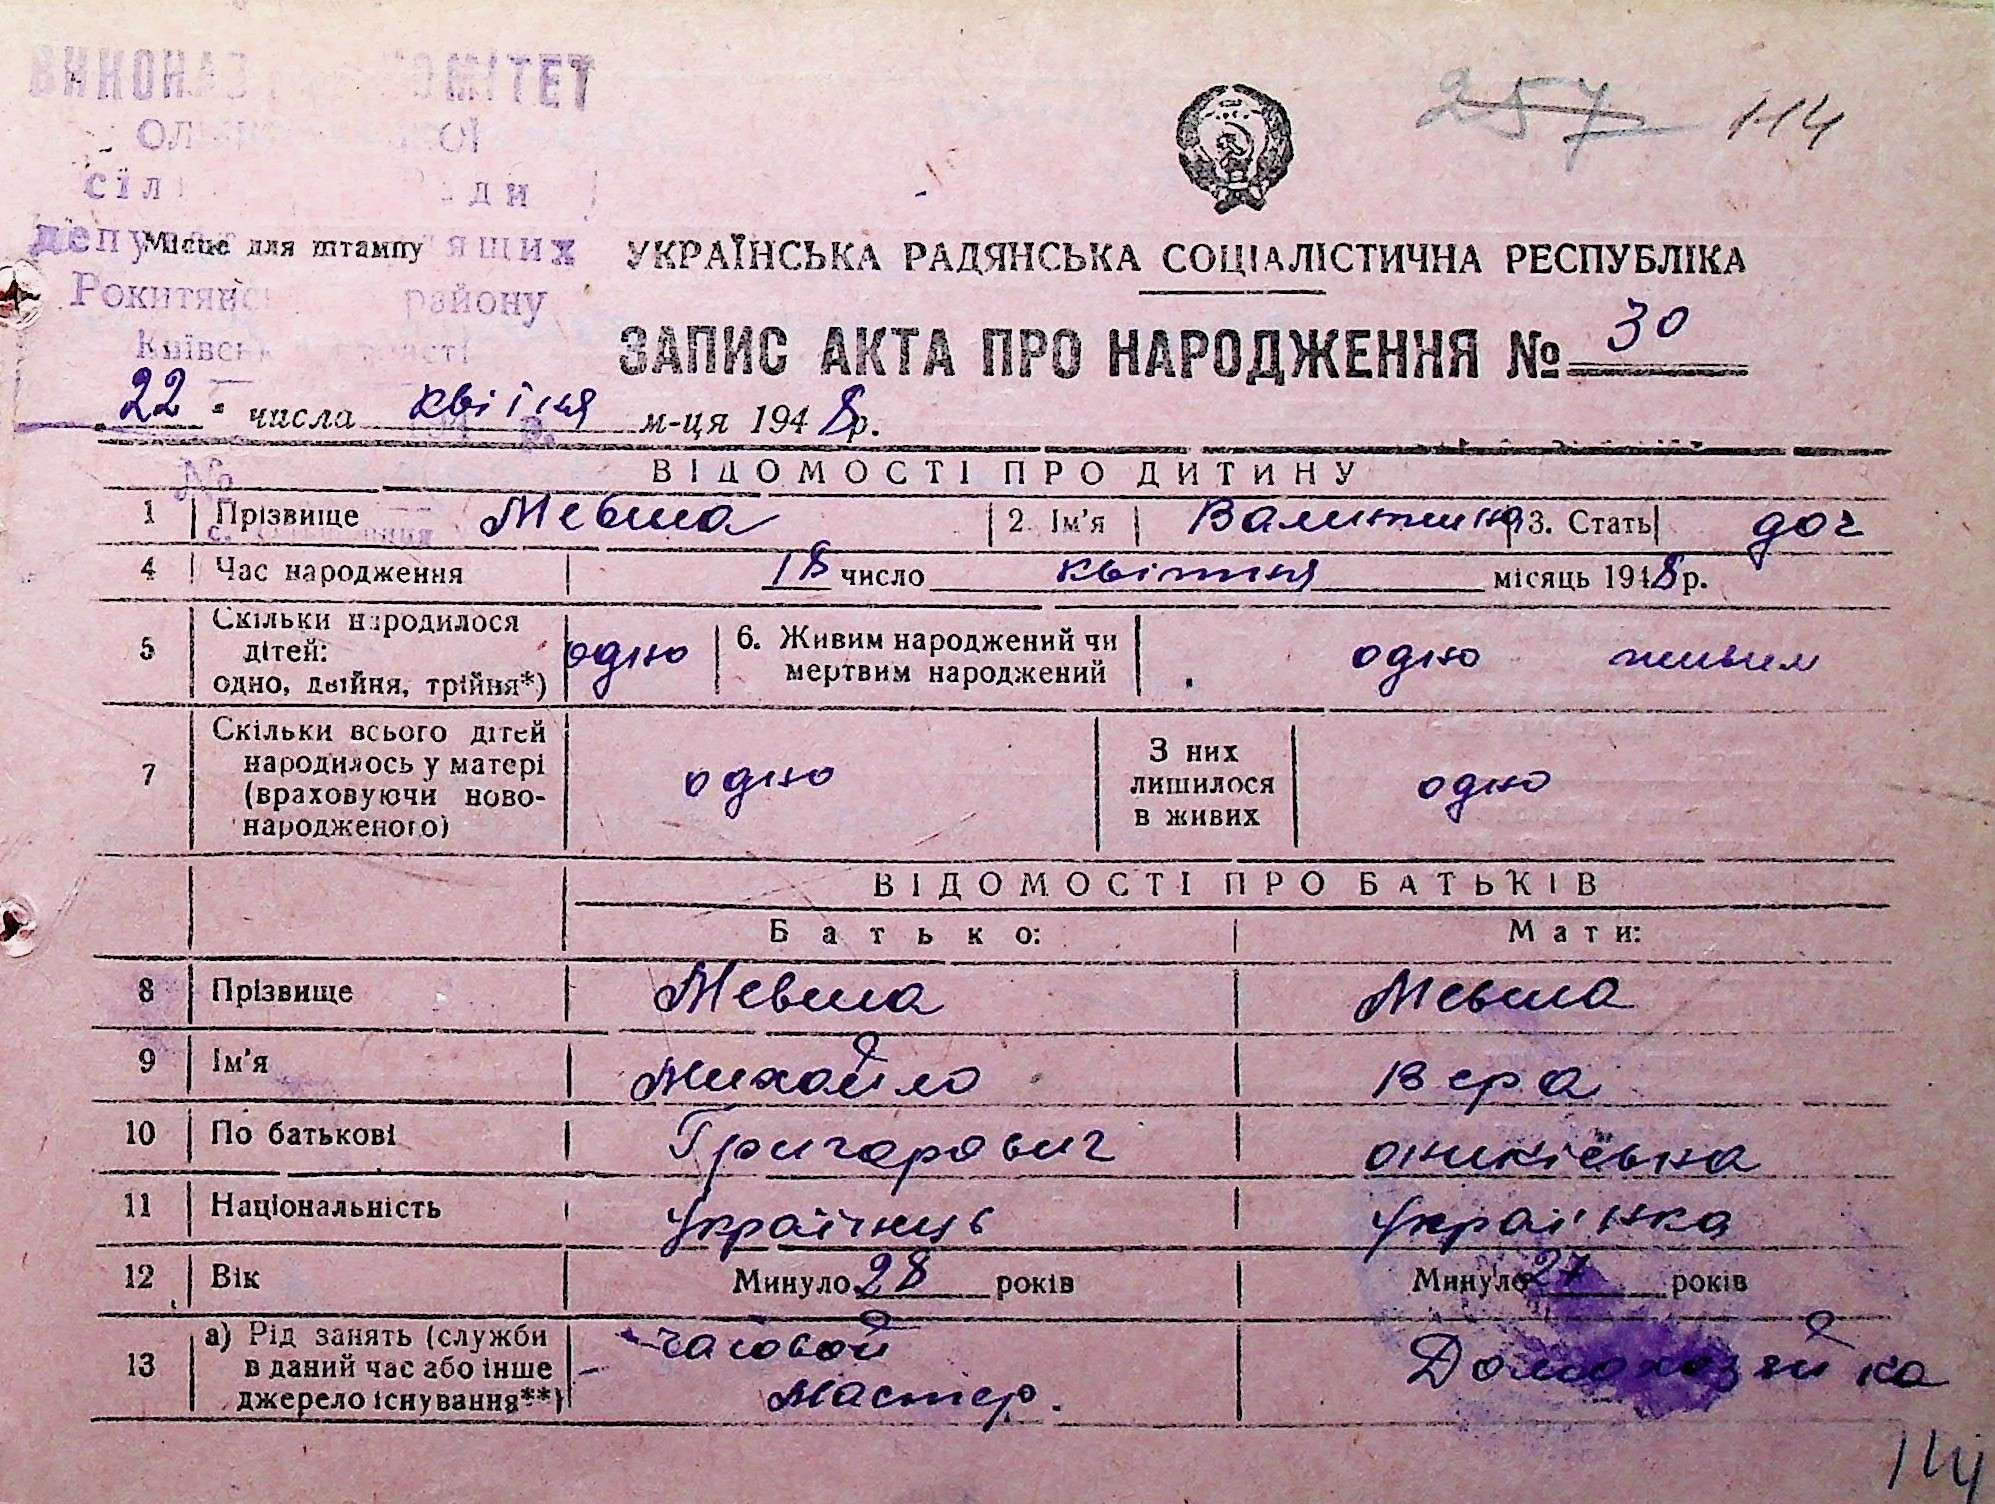 КОМІТЕТ
Ради
депу
Рокитянс району
Київсь
Місце для штампу
257 114
УКРАЇНСЬКА РАДЯНСЬКА СОЦІАЛІСТИЧНА РЕСПУБЛІКА
ЗАПИС АКТА ПРО НАРОДЖЕННЯ № 30
22 числа квітня м-ця 1948 р.
ВІДОМОСТІ ПРО ДИТИНУ
1 Прізвище Мевша 2. Ім'я Валинтина 3. Стать доч
4 Час народження 18 число квітня місяць 1948 р.
5 Скільки народилося
дітей:
одно, двійня, трійня*) одно 6. Живим народжений чи
мертвим народжений одно живим
7 Скільки всього дітей
народилось у матері
(враховуючи ново-
народженого) одно З них
лишилося
в живих одно
ВІДОМОСТІ ПРО БАТЬКІВ
Батько: Мати:
8 Прізвище Мевша Мевша
9 Ім'я Михайло Вера
10 По батькові Григорович оникієвна
11 Національність Українець Українка
12 Вік Минуло 28 років Минуло 27 років
13 а) Рід занять (служби
в даний час або інше
джерело існування**) часовой
мастер. Домохозяйка
114